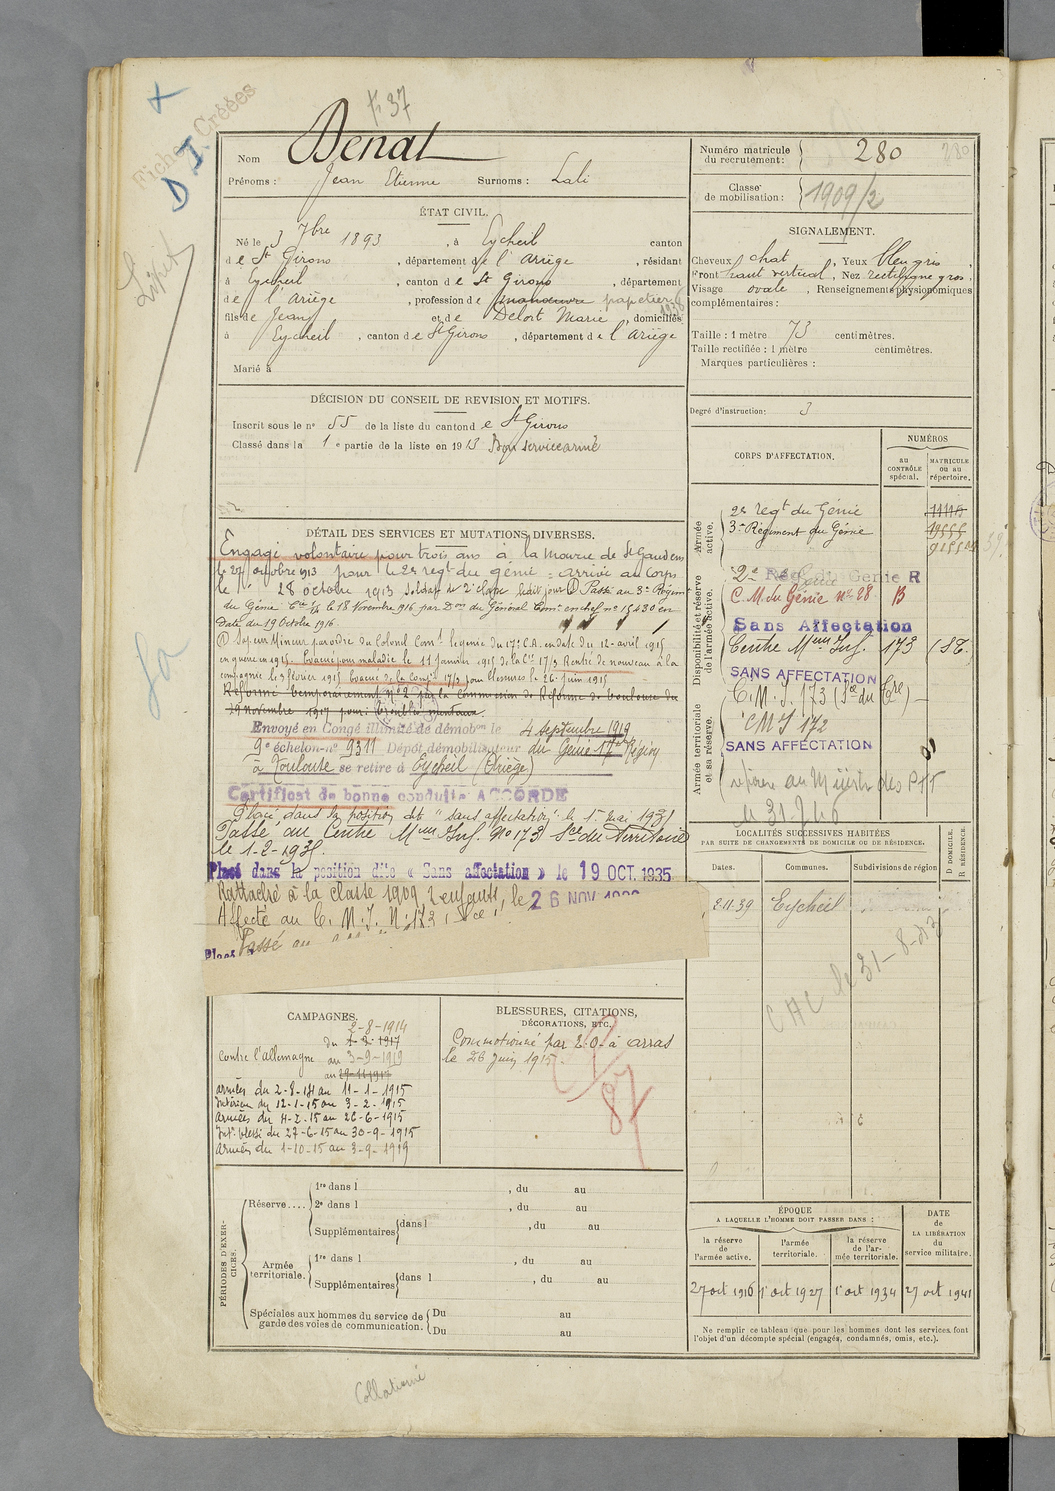 Fiches Créées
D.I.
f° 37
Nom Benat
Prénoms : Jean Etienne Surnoms : Lali
ÉTAT CIVIL.
Né le 3 7bre 1893, à Eycheil canton
de St Girons, département de l'Ariège, résidant
à Eycheil, canton de St Girons, département
de l'Ariège, profession de manoeuvre papetier
1936
fils de Jean et de Delort Marie, domiciliés
à Eycheil, canton de St Girons, département de l'Ariège
Marié à
DÉCISION DU CONSEIL DE REVISION ET MOTIFS.
Inscrit sous le n° 55 de la liste du canton de St Girons
Classé dans la 1e partie de la liste en 1913 Bon service armé
DÉTAIL DES SERVICES ET MUTATIONS DIVERSES.
Engagé volontaire pour trois ans à la Mairie de St Gaudens
le 27 octobre 1913 pour le 2e regt du génie = arrivé au corps
le 28 octobre 1913 Soldat de 2e classe ledit jour Passé au 3e Régim
du Génie Cie le 18 Novembre 1916 par Don du Général Comt en chef n° 15430 en
Date du 19 Octobre 1916
Sapeur Mineur par ordre du Colonel Comt le génie du 17e C.A. en date du 12 avril 1915
en guerre en 1915. Evacué pour maladie le 11 Janvier 1915 de la Cie 17/3 Rentré de nouveau à la
compagnie le 3 février 1915 Evacué de la Comp 17/3 pour blessures le 26 Juin 1915
Réformé temporairement n° 2 par la Commission de Réforme de Toulouse du
29 Novembre 1917 pour: troubles mentaux.
Envoyé en Congé illimité de démobon le 4 septembre 1919
9e échelon-n° 9311 Dépôt démobilisateur du Génie 17e Région
à Toulouse se retire à Eycheil (Ariège)
Certificat de bonne conduite ACCORDÉ
Placé dans la position dite "sans affectation" le 1er mai 1931
Passé au Centre Mque Inf. N° 173 Sce du Territoire
le 1-2-193
Placé dans la position dite « Sans affectation » le 19 OCT. 1935
Rattaché à la classe 1909 2 enfants, le 26 NOV
Affecté au C. M. I. N° 173
Passé au
Placé
CAMPAGNES.
contre l'allemagne du 2-8-1914
au 3-9-1919
armées du 2-8-14 au 11-1-1915
Intérieur du 12-1-15 au 3-2-1915
armées du 4-2-15 au 26-6-1915
Intr blessé du 27-6-15 au 30-9-1915
armées du 1-10-15 au 3-9-1919
BLESSURES, CITATIONS,
DÉCORATIONS, ETC.
Commotionné par E.O. à Arras
le 26 Juin 1915
87
PÉRIODES D'EXERCICES.
Réserve....
1re dans l , du au
2e dans l , du au
Supplémentaires dans l , du au
Armée territoriale.
1re dans l , du au
Supplémentaires dans l , du au
Spéciales aux hommes du service de garde des voies de communication.
Du au
Du au
Numéro matricule du recrutement : 280
280
Classe de mobilisation : 1909/2
SIGNALEMENT.
Cheveux chat, Yeux bleu gris,
Front haut vertical, Nez rectiligne gros,
Visage ovale, Renseignements physionomiques
complémentaires :
Taille : 1 mètre 73 centimètres.
Taille rectifiée : 1 mètre centimètres.
Marques particulières :
Degré d'instruction : 3
CORPS D'AFFECTATION.
NUMÉROS
au CONTRÔLE spécial.
MATRICULE OU AU répertoire.
Armée active.
2e regt du Génie
3e Régiment du Génie
Disponibilité et réserve de l'armée active.
2e Rég. du Génie R
C. M. du Génie n° 28 B
Sans Affectation
Centre Mque Inf. 173
SANS AFFECTATION
Armée territoriale et sa réserve.
C. M. I. 173
CMI 172
SANS AFFECTATION
réserve au Ministre des PTT
LOCALITÉS SUCCESSIVES HABITÉES
PAR SUITE DE CHANGEMENTS DE DOMICILE OU DE RÉSIDENCE.
Dates.
Communes.
Subdivisions de région
D DOMICILE.
R RÉSIDENCE.
2-11-39 Eycheil
CAC le 31-8-43
ÉPOQUE
A LAQUELLE L'HOMME DOIT PASSER DANS :
la réserve de l'armée active.
l'armée territoriale.
la réserve de l'armée territoriale.
DATE de LA LIBÉRATION du service militaire.
27 oct 1916
1er oct 1927
1er oct 1934
27 oct 1941
Ne remplir ce tableau que pour les hommes dont les services font
l'objet d'un décompte spécial (engagés, condamnés, omis, etc.).
Collationné